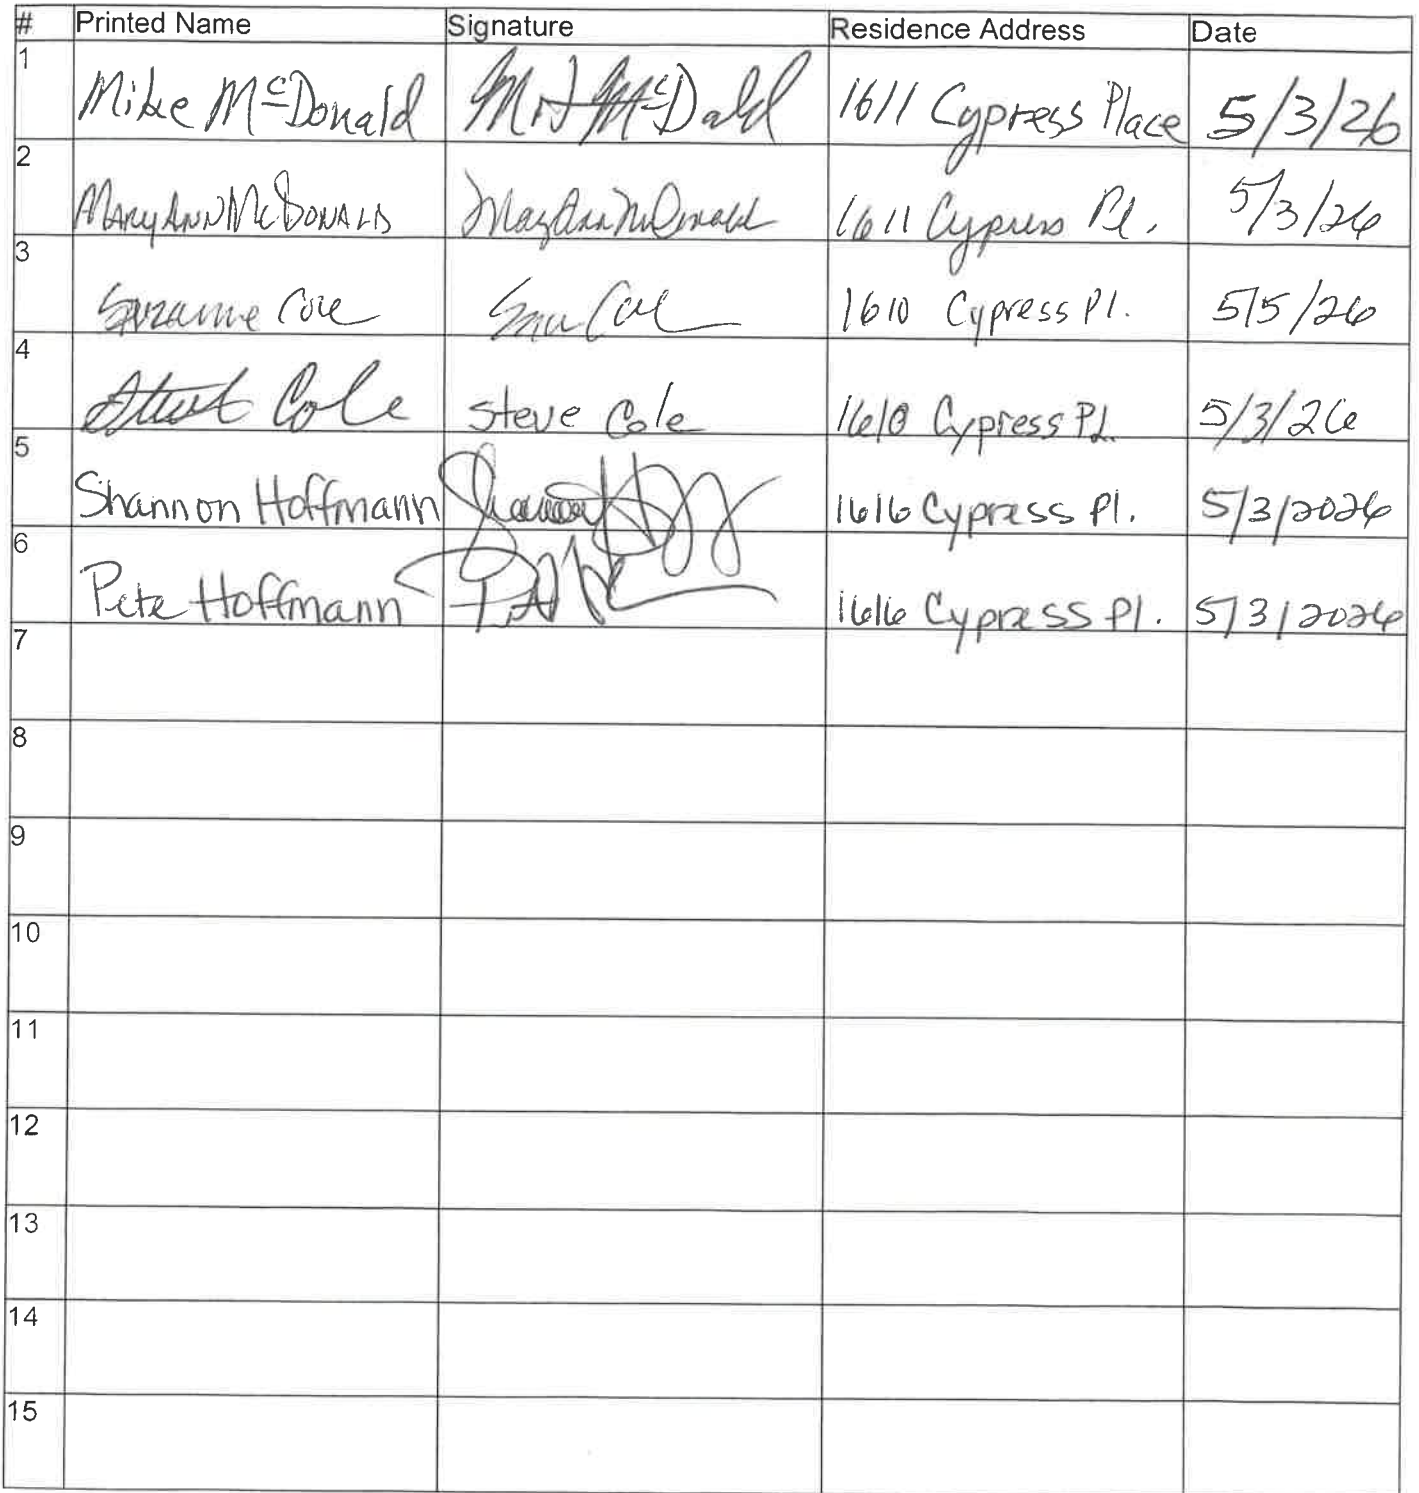 # Printed Name Signature Residence Address Date
1 Mike McDonald 1611 Cypress Place 5/3/26
2 MARYANN McDONALD MaryAnn McDonald 1611 Cypress Pl. 5/3/26
3 Suzanne Cole 1610 Cypress Pl. 5/5/26
4 Cole Steve Cole 1610 Cypress PL. 5/3/26
5 Shannon Hoffmann Shannon 1616 Cypress Pl. 5/3/2026
6 Pete Hoffmann 1616 Cypress Pl. 5/3/2026
7
8
9
10
11
12
13
14
15